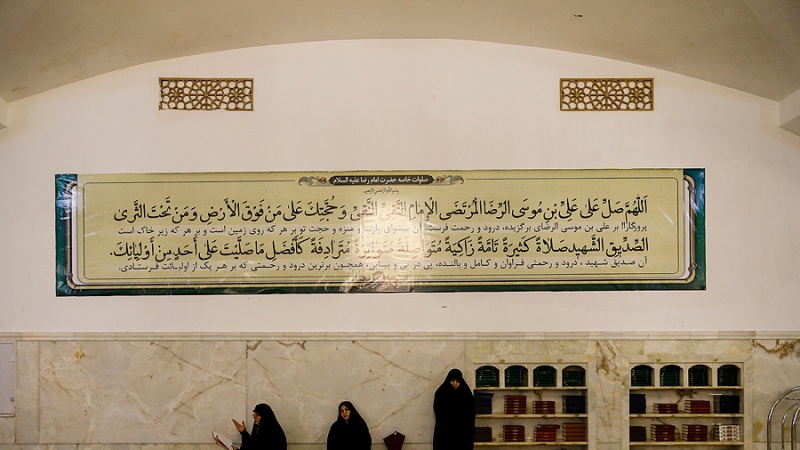 صلوات خاصه حضرت امام رضا علیه السلام
بسم الله الرحمن الرحیم
اَللّهُمَّ صَلِّ عَلی عَلِیِّ بْنِ مُوسَی الرِّضَا الْمُرْتَضَی الْاِمامِ التَّقِیِّ النَّقِیِّ وَ حُجَّتِکَ عَلی مَنْ فَوْقَ الْاَرْضِ وَ مَنْ تَحْتَ الثَّری
پروردگارا! بر علی بن موسی الرضای برگزیده، درود و رحمت فرست، آن پیشوای پارسا و منزه و حجت تو بر هر که روی زمین است و بر هر که زیر خاک است
الصِّدّیقِ الشَّهیدِ صَلاةً کَثیرَةً تامَّةً زاکِیَةً مُتَواصِلَةً مُتَواتِرَةً مُتَرادِفَةً کَاَفْضَلِ ما صَلَّیْتَ عَلی اَحَدٍ مِنْ اَوْلِیائِکَ.
آن صدیق شهید، درود و رحمتی فراوان و کامل و بالنده، پی در پی و پیاپی، همچون برترین درود و رحمتی که بر هر یک از اولیائت فرستادی.